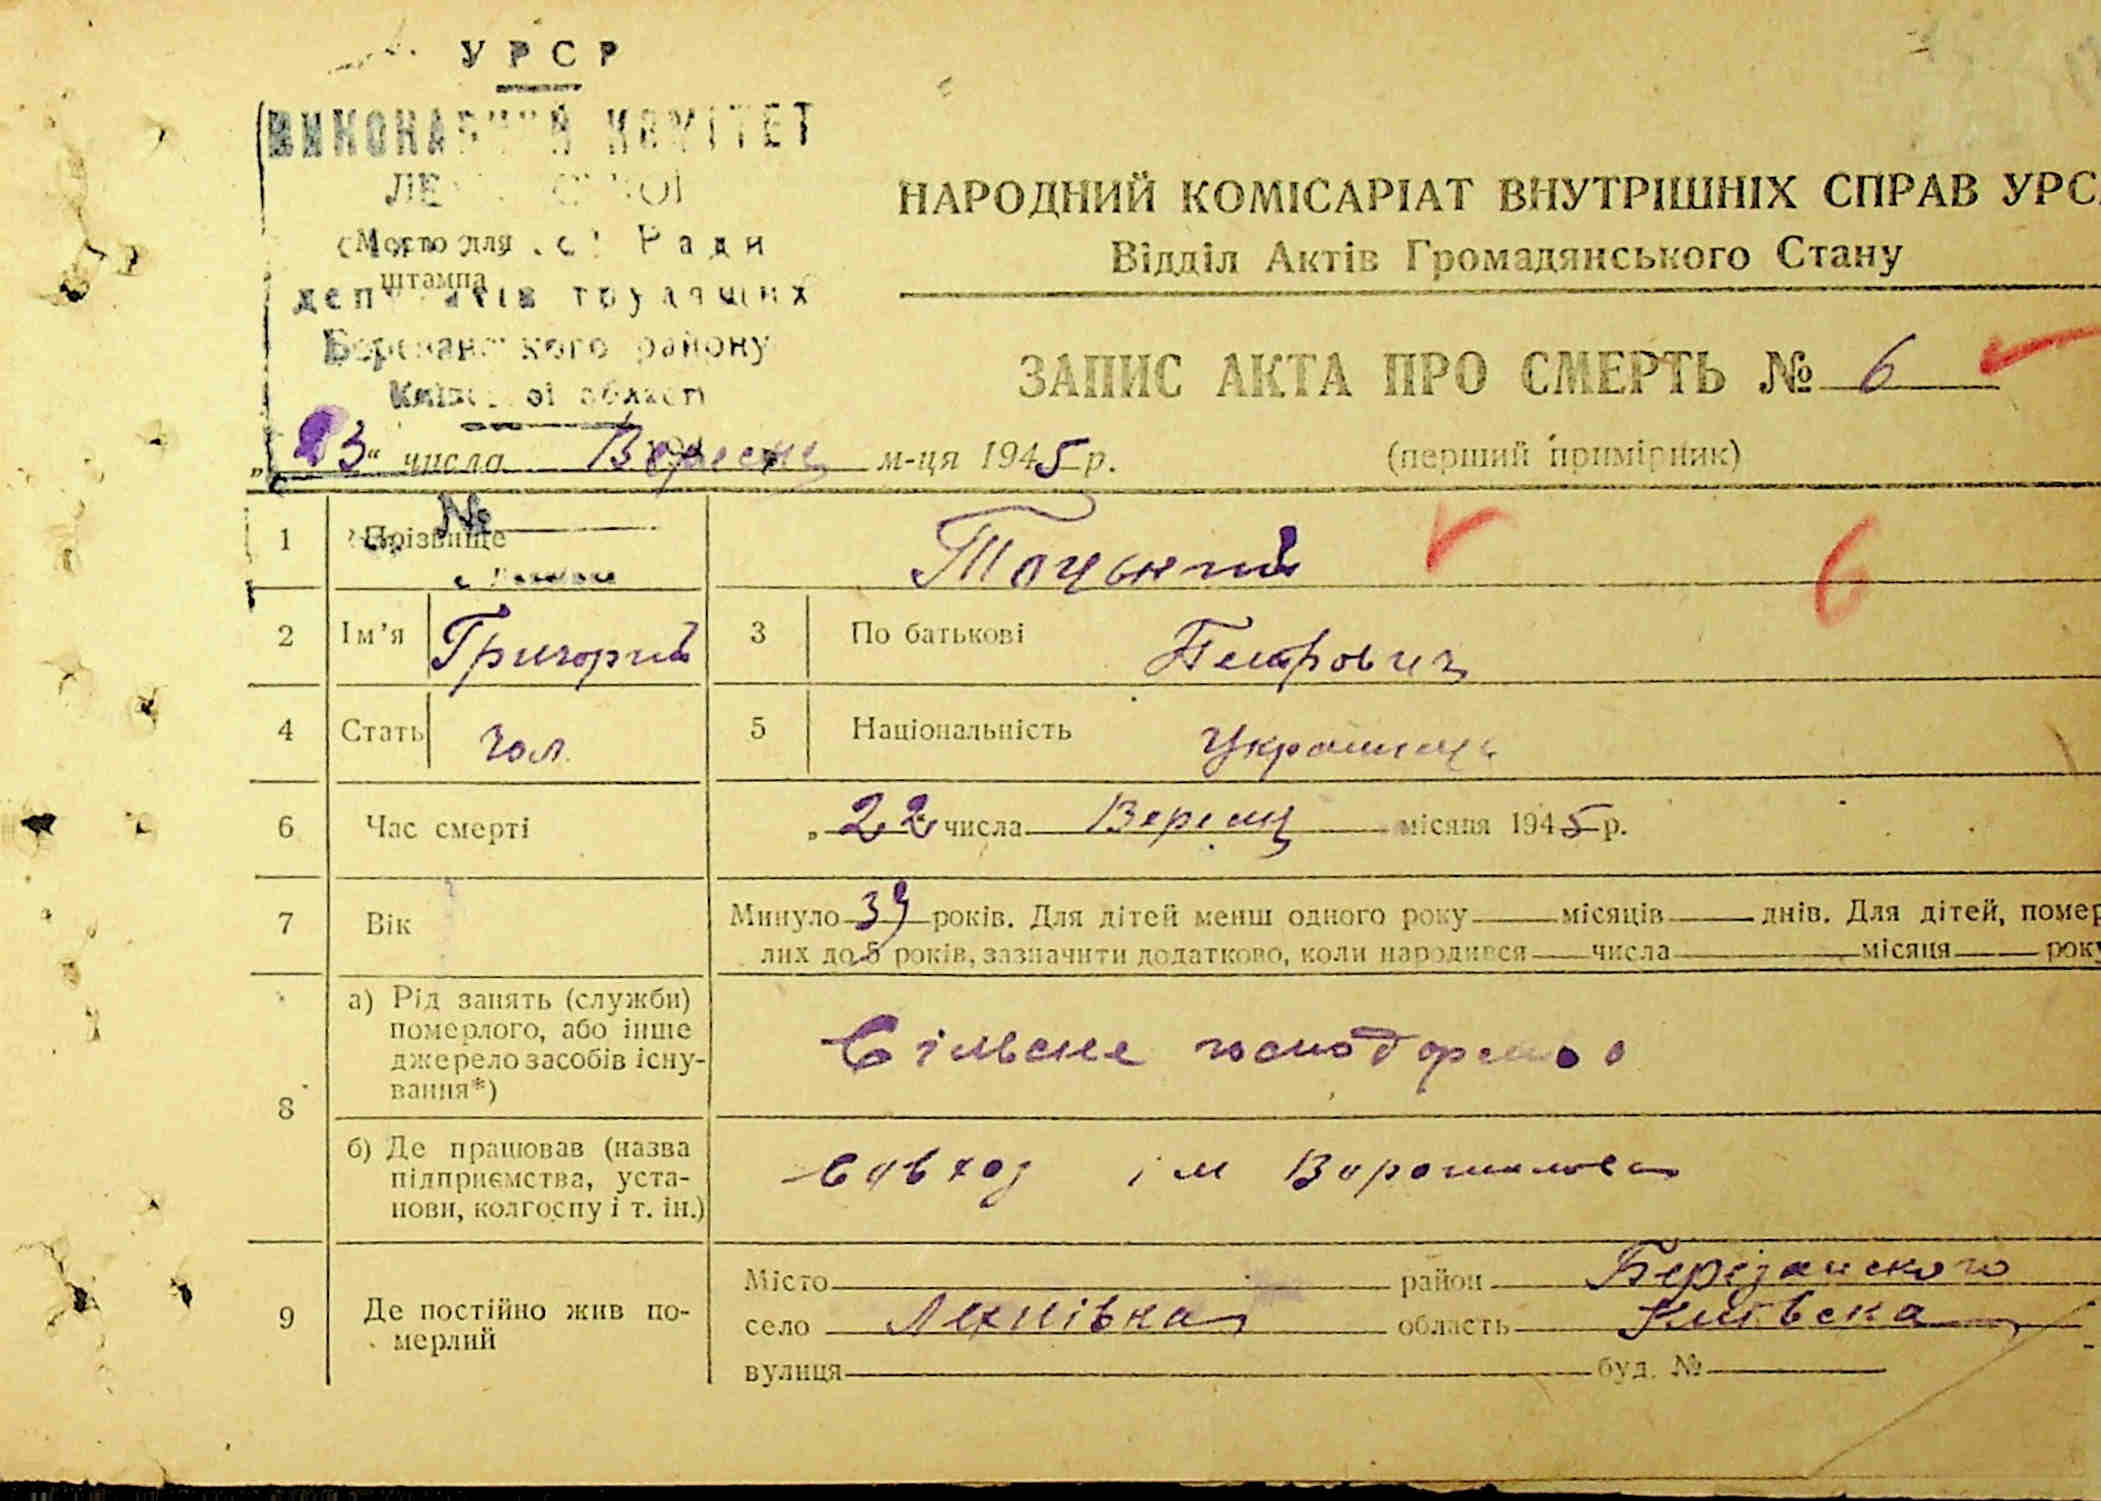 УРСР
ВИКОНАВЧИЙ КОМІТЕТ
Ради
Місто для
штампа
депутатів трудящих
Березанського району
Київської області
НАРОДНИЙ КОМІСАРІАТ ВНУТРІШНІХ СПРАВ УРС
Відділ Актів Громадянського Стану
ЗАПИС АКТА ПРО СМЕРТЬ № 6
„23“ числа Вересня м-ця 1945 р.
(перший примірник)
№
1 Прізвище 6
2 Ім’я Григорий 3 По батькові Петрович
4 Стать Чол. 5 Національність Украинець
6 Час смерті „22 числа Вересня місяця 1945 р.
7 Вік Минуло 39 років. Для дітей менш одного року місяців днів. Для дітей, помер
лих до 5 років, зазначити додатково, коли народився числа місяця року
8 а) Рід занять (служби) померлого, або інше джерело засобів існування*) Сільске господорство
б) Де працював (назва підприємства, установи, колгоспу і т. ін.) Савхоз ім Ворошилова
9 Де постійно жив померлий
Місто район Березанского
село Лехнівка область Київска
вулиця буд. №